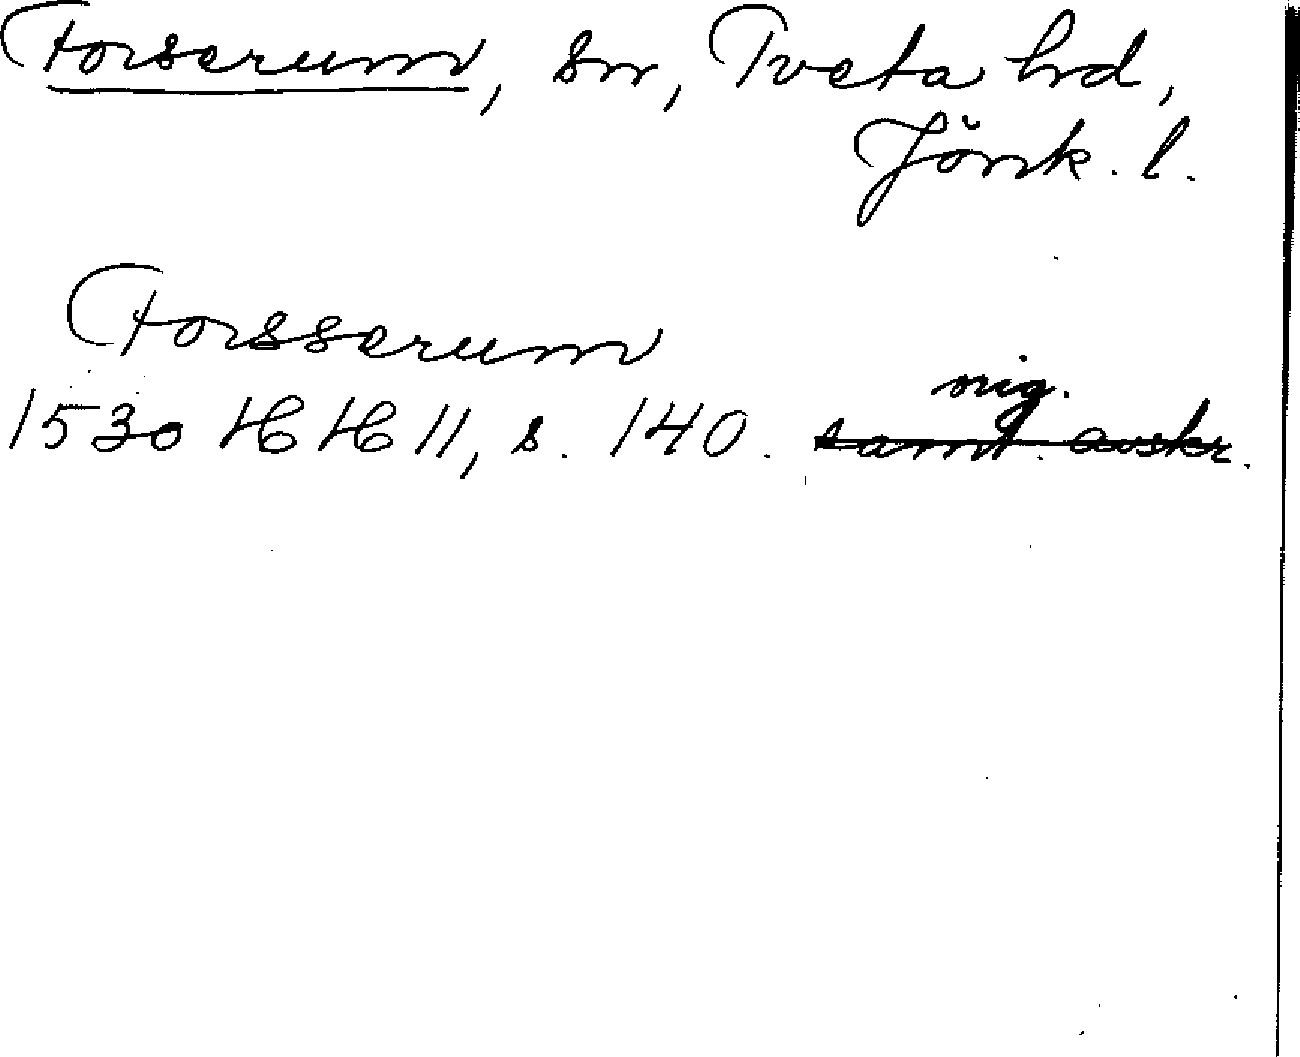 Forserum, sn, Tveta hd,
Jönk. l.
Forsserum
orig.
1530 HH 11, s. 140. samt. avskr.